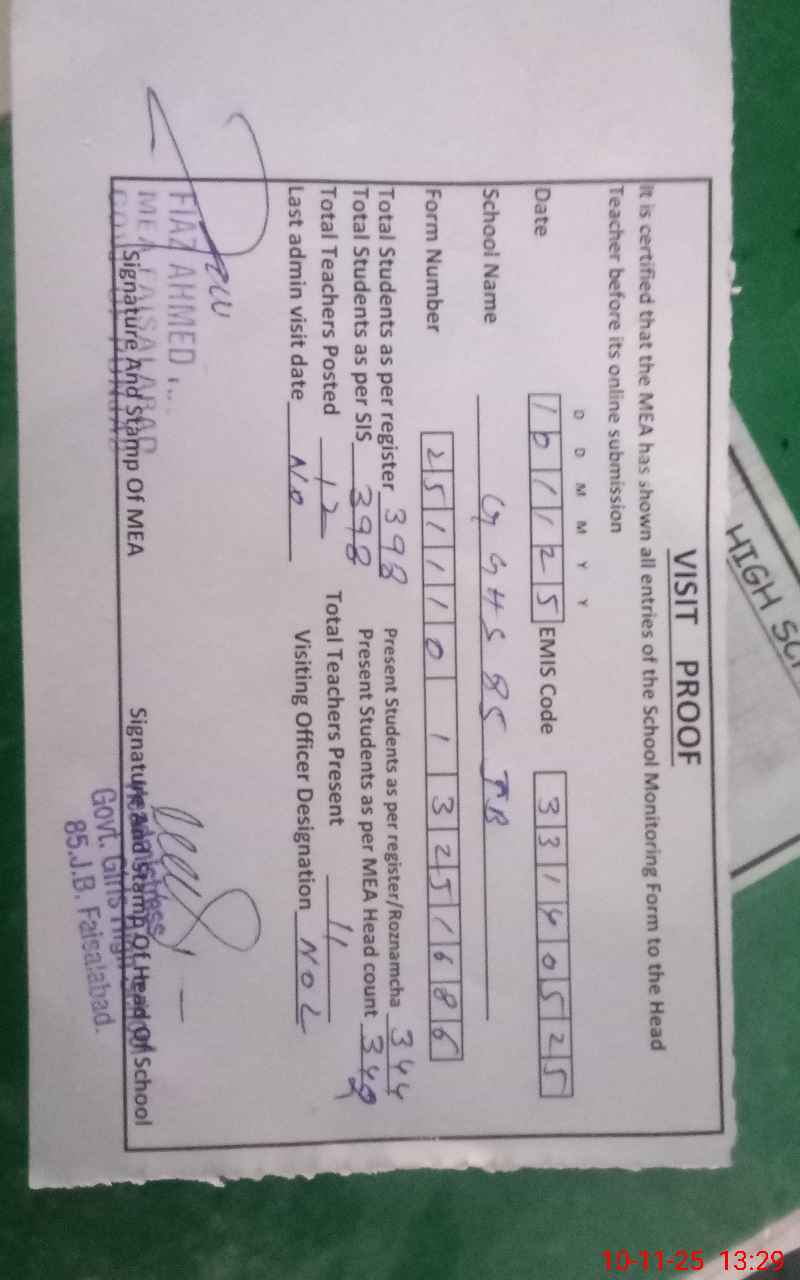 VISIT PROOF
It is certified that the MEA has shown all entries of the School Monitoring Form to the Head
Teacher before its online submission
D D M M Y Y
Date 101125 EMIS Code 33140525
School Name GGHS 85 JB
Form Number 251110 1 3251686
Total Students as per register 398 Present Students as per register/Roznamcha 344
Total Students as per SIS 398 Present Students as per MEA Head count
Total Teachers Posted 12 Total Teachers Present 11
Last admin visit date No Visiting Officer Designation NOL
FIAZ AHMED
MEA FAISALABAD
Signature And Stamp Of MEA Signature and Stamp Of Head Of School
Govt. Girls High
85.J.B. Faisalabad.
HIGH
10-11-25 13:29